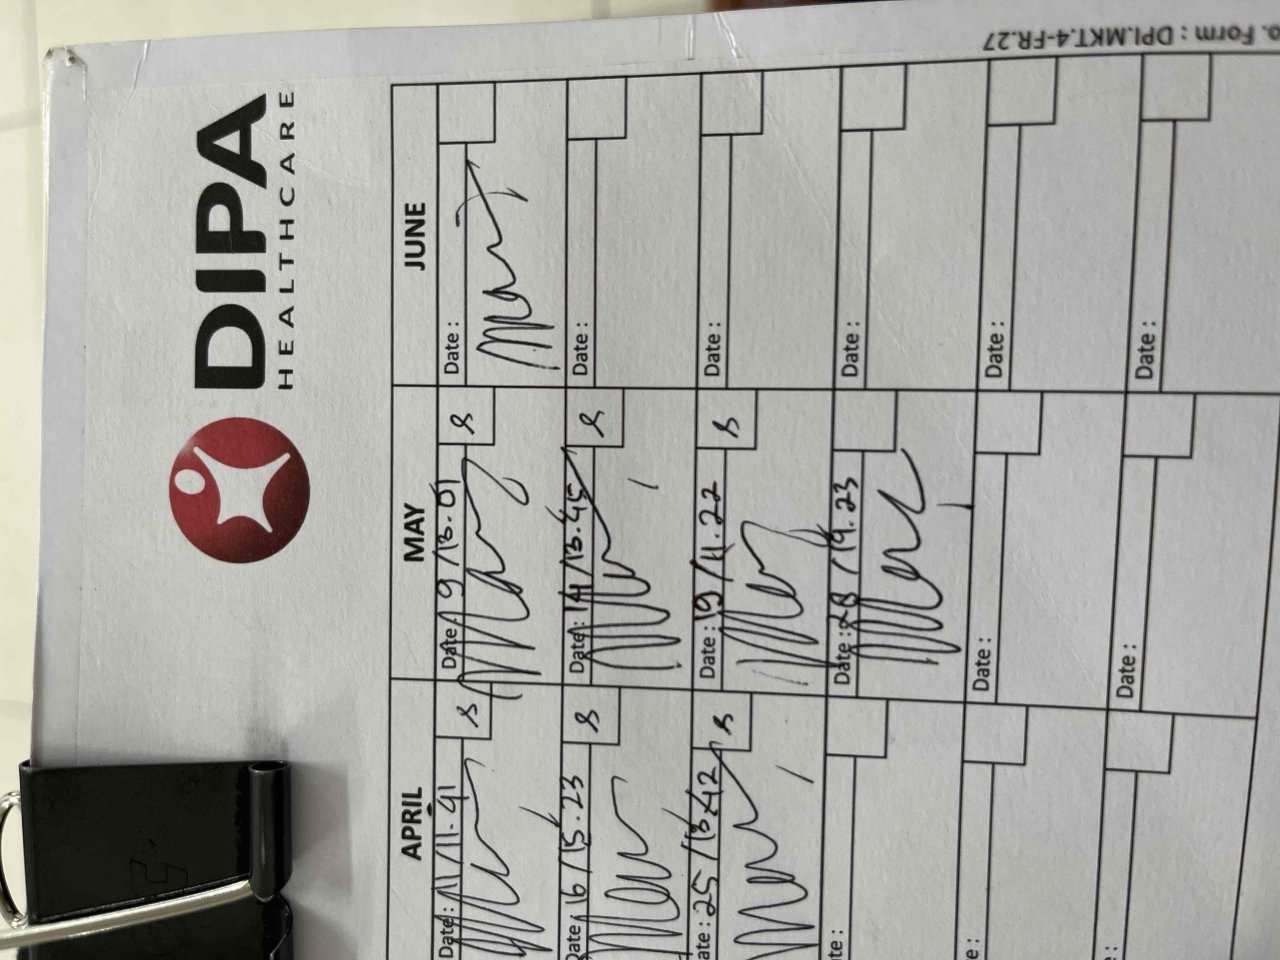 No. Form : DPI.MKT.4-FR.27
DIPA
HEALTHCARE
APRIL MAY JUNE
Date : 11/11.41 S Date : 9/13.01 S Date :
Date : 16/15.23 S Date : 14/13.45 S Date :
Date : 25/13.42 S Date : 19/11.22 S Date :
Date : Date : 28/19.23 Date :
Date : Date : Date :
Date : Date : Date :